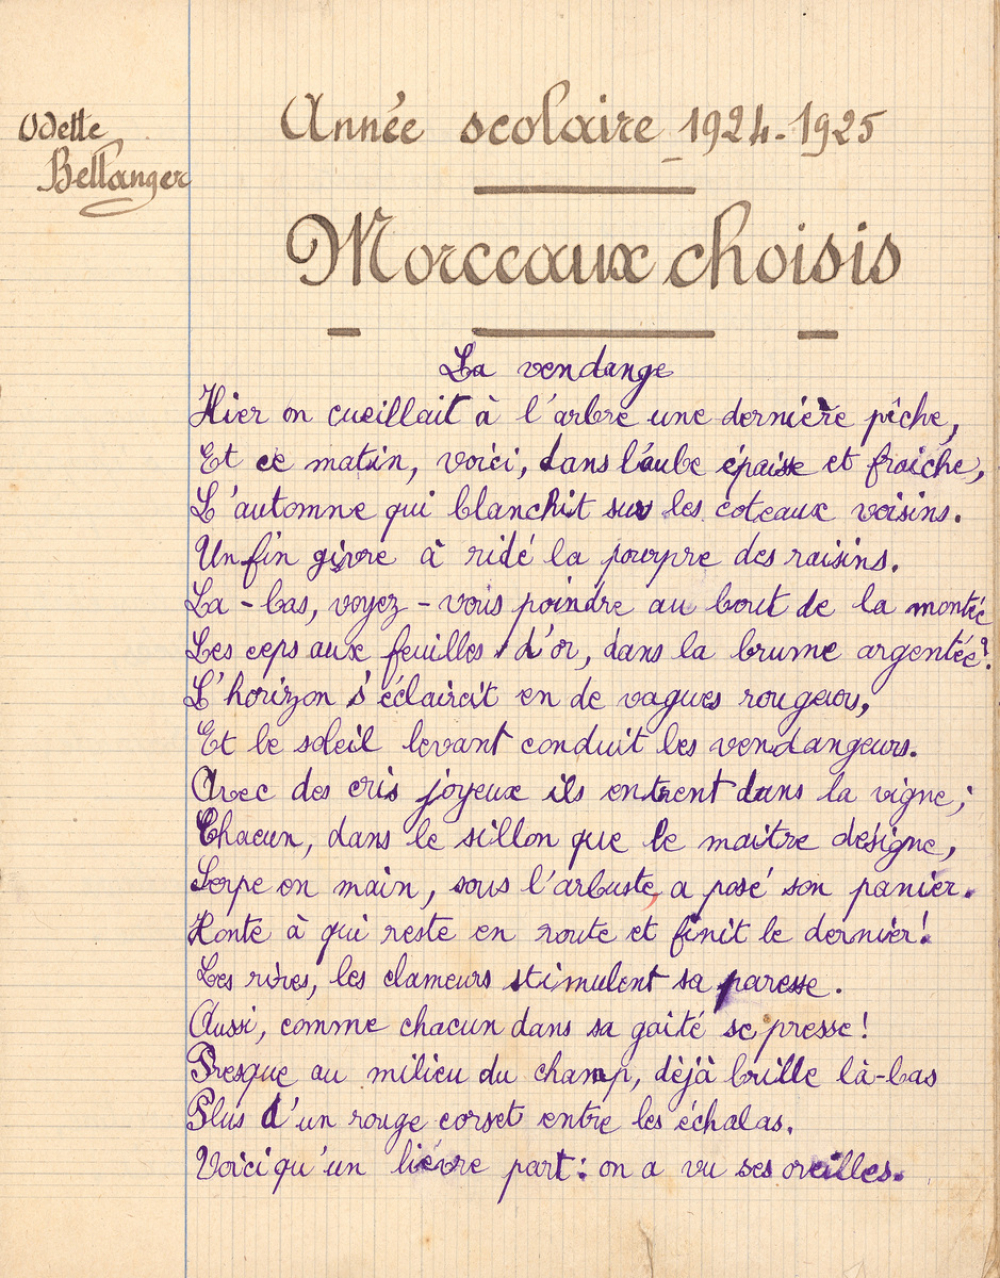 Odette
Bellanger
Année scolaire 1924-1925
Morceaux choisis
La vendange
Hier on cueillait à l'arbre une dernière pêche,
Et ce matin, voici, dans l'aube épaisse et fraîche,
L'automne qui blanchit sur les coteaux voisins.
Un fin givre à ridé la pourpre des raisins.
La-bas, voyez-vous poindre au bout de la montée
Les ceps aux feuilles d'or, dans la brume argentée?
L'horizon s'éclaircit en de vagues rougeurs,
Et le soleil levant conduit les vendangeurs.
Avec des cris joyeux ils entrent dans la vigne;
Chacun, dans le sillon que le maître désigne,
Serpe en main, sous l'arbuste, a posé son panier.
Honte à qui reste en route et finit le dernier!
Les rires, les clameurs stimulent sa paresse.
Aussi, comme chacun dans sa gaité se presse!
Presque au milieu du champ, dèjà brille là-bas
Plus d'un rouge corset entre les échalas.
Voici qu'un lièvre part: on a vu ses oreilles.